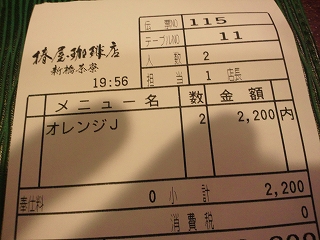 椿屋珈琲店
新橋茶寮
19:56
伝票NO 115
テーブルNO 11
人数 2
担当 1 店長
メニュー名 数 金額
オレンジJ 2 2,200 内
奉仕料 0 小計 2,200
消費税 0